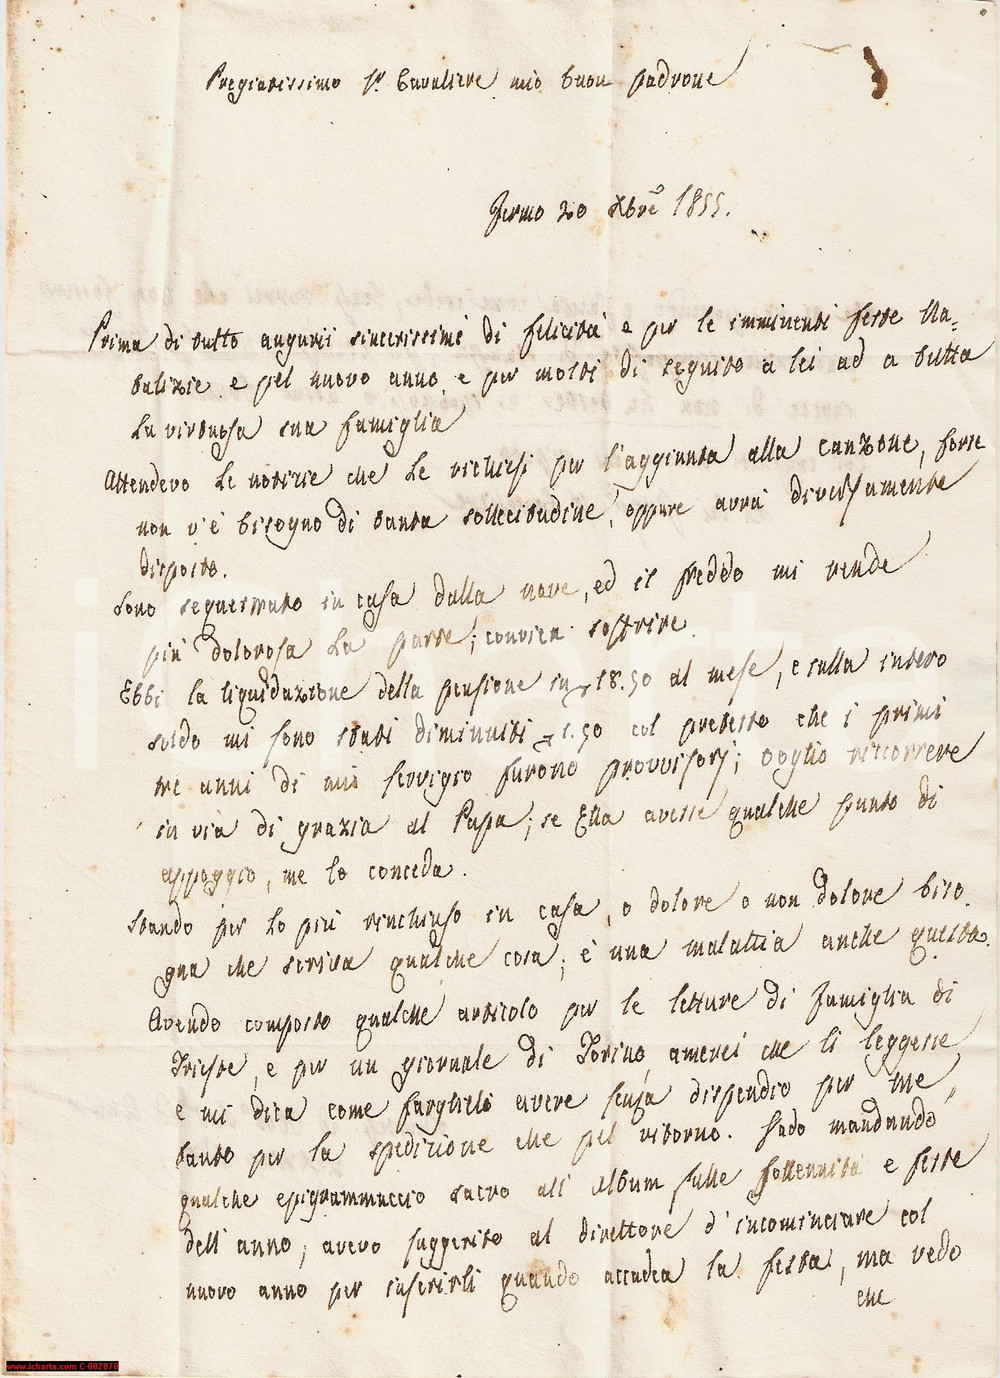 Pregiatissimo Sr. Cavaliere mio buon padrone
Fermo 20 Xbre 1855.
Prima di tutto augurii sincerissimi di felicità e per le imminenti feste Na=
talizie e pel nuovo anno e per molti di seguito a lei ad a tutta
la virtuosa sua famiglia
Attendevo le notizie che le richiesi per l'aggiunta alla canzone, forse
non v'è bisogno di tanta sollecitudine, oppure avrà diversamente
disposto.
Sono sequestrato in casa dalla neve, ed il freddo mi rende
più dolorosa la parte; convien soffrire.
Ebbi la liquidazione della pensione in 18.50 al mese, e sulla intero
soldo mi sono stati diminuiti 1.50 col pretesto che i primi
tre anni di mio servigio furono provvisorj; voglio riccorrere
in via di grazia al Papa; se Ella avesse qualche punto di
appoggio, me lo conceda.
Stando per lo più renchiuso in casa, o dolore o non dolore biso.
gna che scriva qualche cosa; è una malattia anche questa.
Avendo composto qualche articolo per le letture di famiglia di
Trieste, e per un giornale di Torino, amerei che li leggesse
e mi dica come farglieli avere senza dispendio per me,
tanto per la spedizione che pel ritorno. Vado mandando
qualche epigrammuccio sacro all' Album sulle sollennità e feste
dell' anno; avevo suggerito al direttore d' incominciare col
nuovo anno per inserirli quando accadea la festa, ma vedo
che
www.icharta.com C-002870